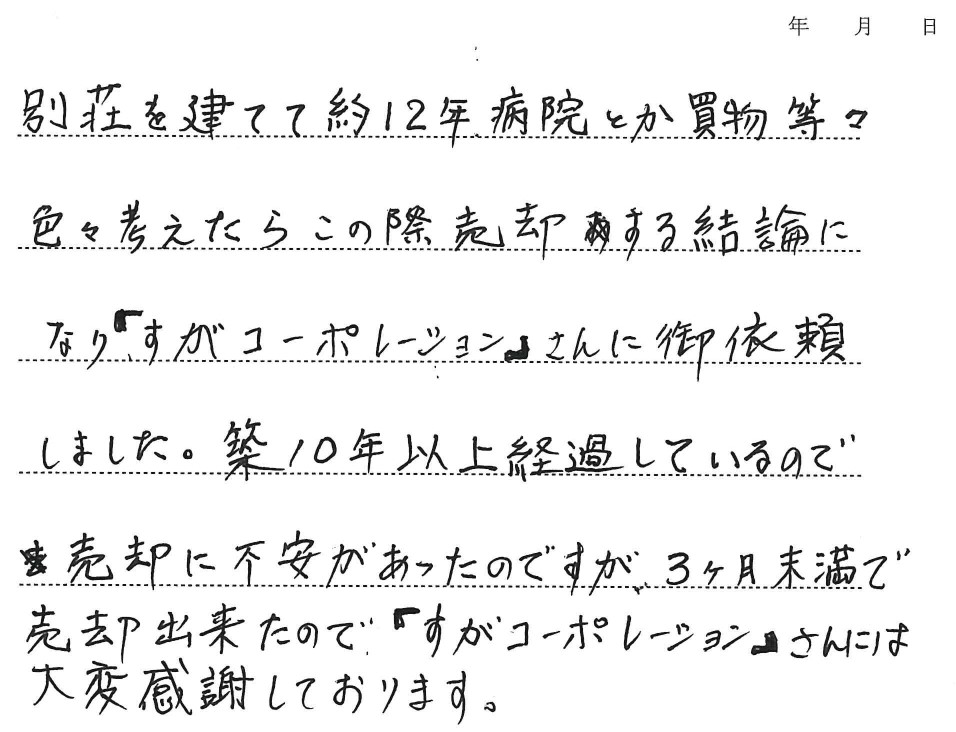 年 月 日
別荘を建てて約12年、病院とか買物等々
色々考えたらこの際売却する結論に
なり『すがコーポレーション』さんに御依頼
しました。築10年以上経過しているので
売却に不安があったのですが、3ヶ月未満で
売却出来たので『すがコーポレーション』さんには
大変感謝しております。